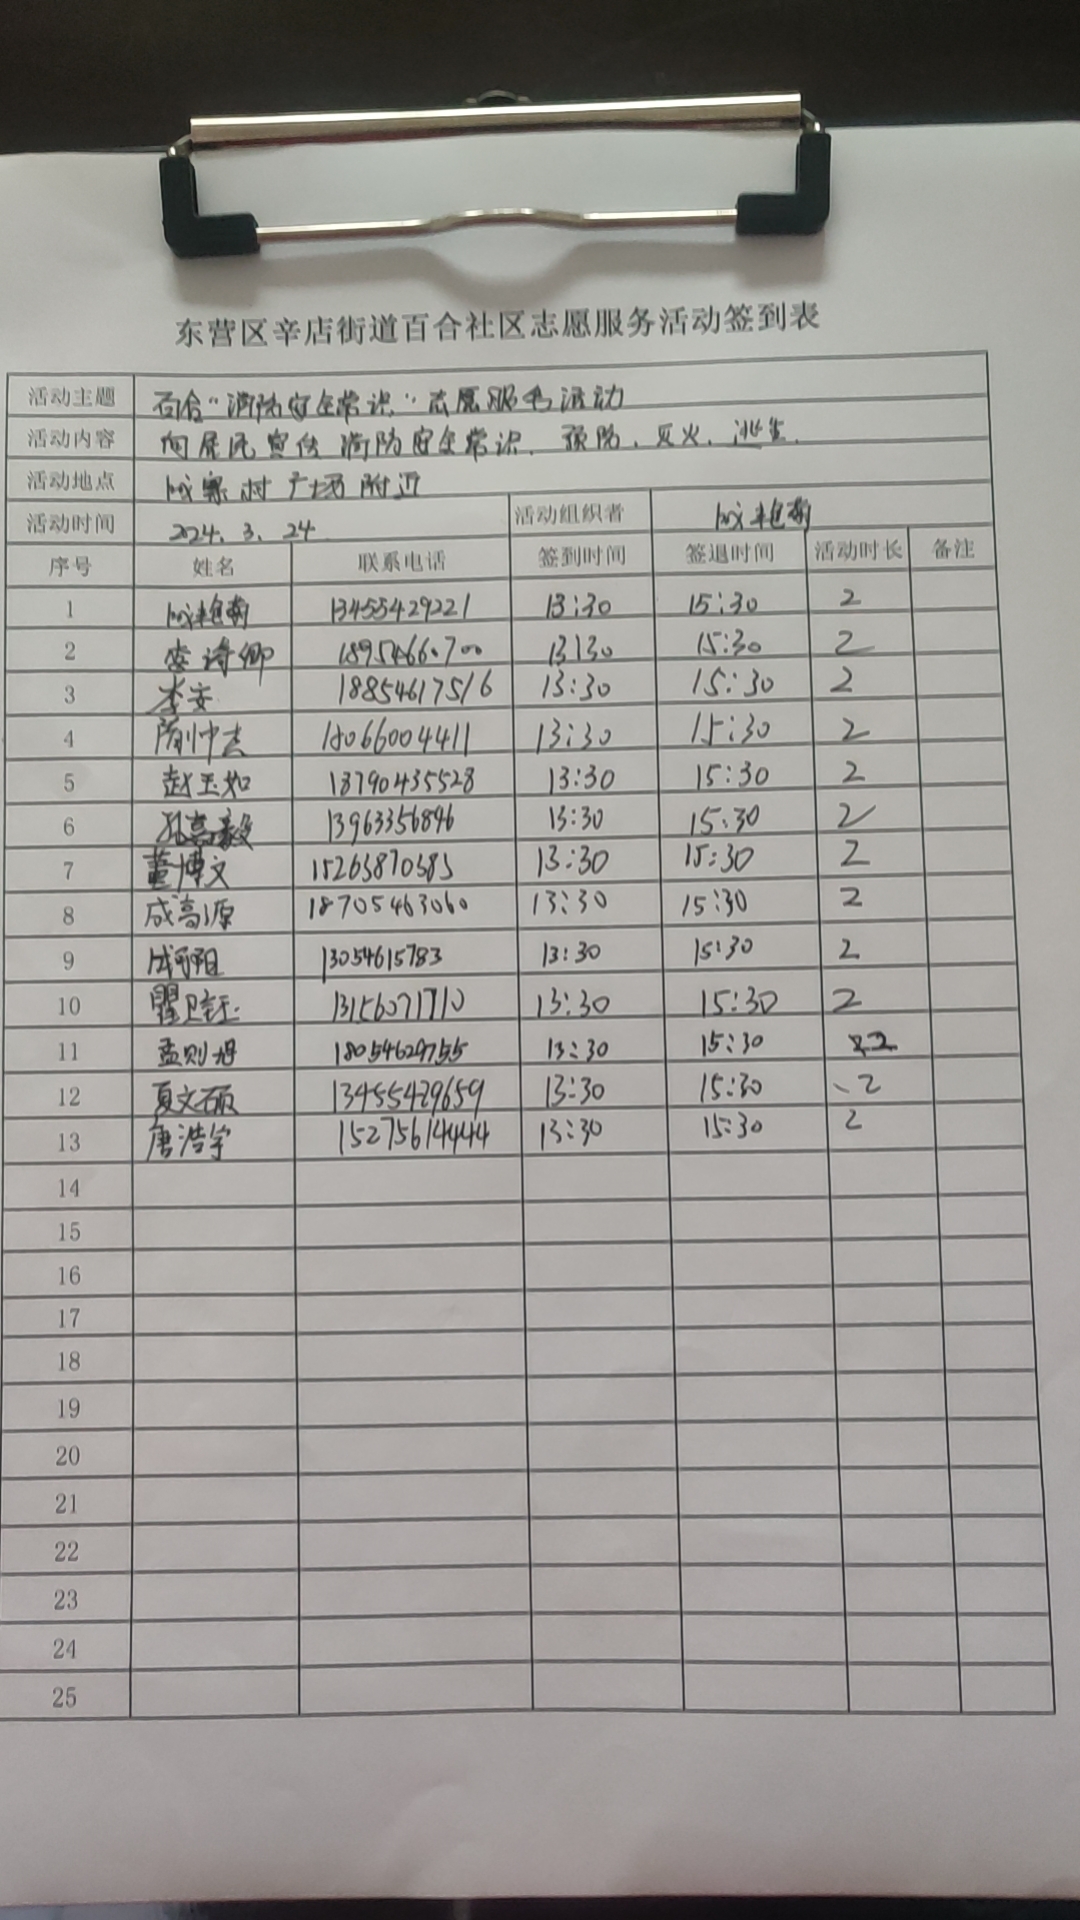 东营区辛店街道百合社区志愿服务活动签到表
活动主题 百合“消防安全常识”志愿服务活动
活动内容 向居民宣传消防安全常识、预防、灭火、逃生.
活动地点 村广场附近
活动时间 2024.3.24 活动组织者
序号 姓名 联系电话 签到时间 签退时间 活动时长 备注
1 13455429221 13:30 15:30 2
2 18954660700 13:30 15:30 2
3 李安 18854617516 13:30 15:30 2
4 隋中杰 18066004411 13:30 15:30 2
5 赵玉如 18790435528 13:30 15:30 2
6 孔高毅 13963356896 13:30 15:30 2
7 董博文 15263870583 13:30 15:30 2
8 成高源 18705463060 13:30 15:30 2
9 13054615783 13:30 15:30 2
10 13156071710 13:30 15:30 2
11 孟则 18054629755 13:30 15:30 2
12 夏文硕 13455429659 13:30 15:30 2
13 唐浩宇 15275614444 13:30 15:30 2
14
15
16
17
18
19
20
21
22
23
24
25